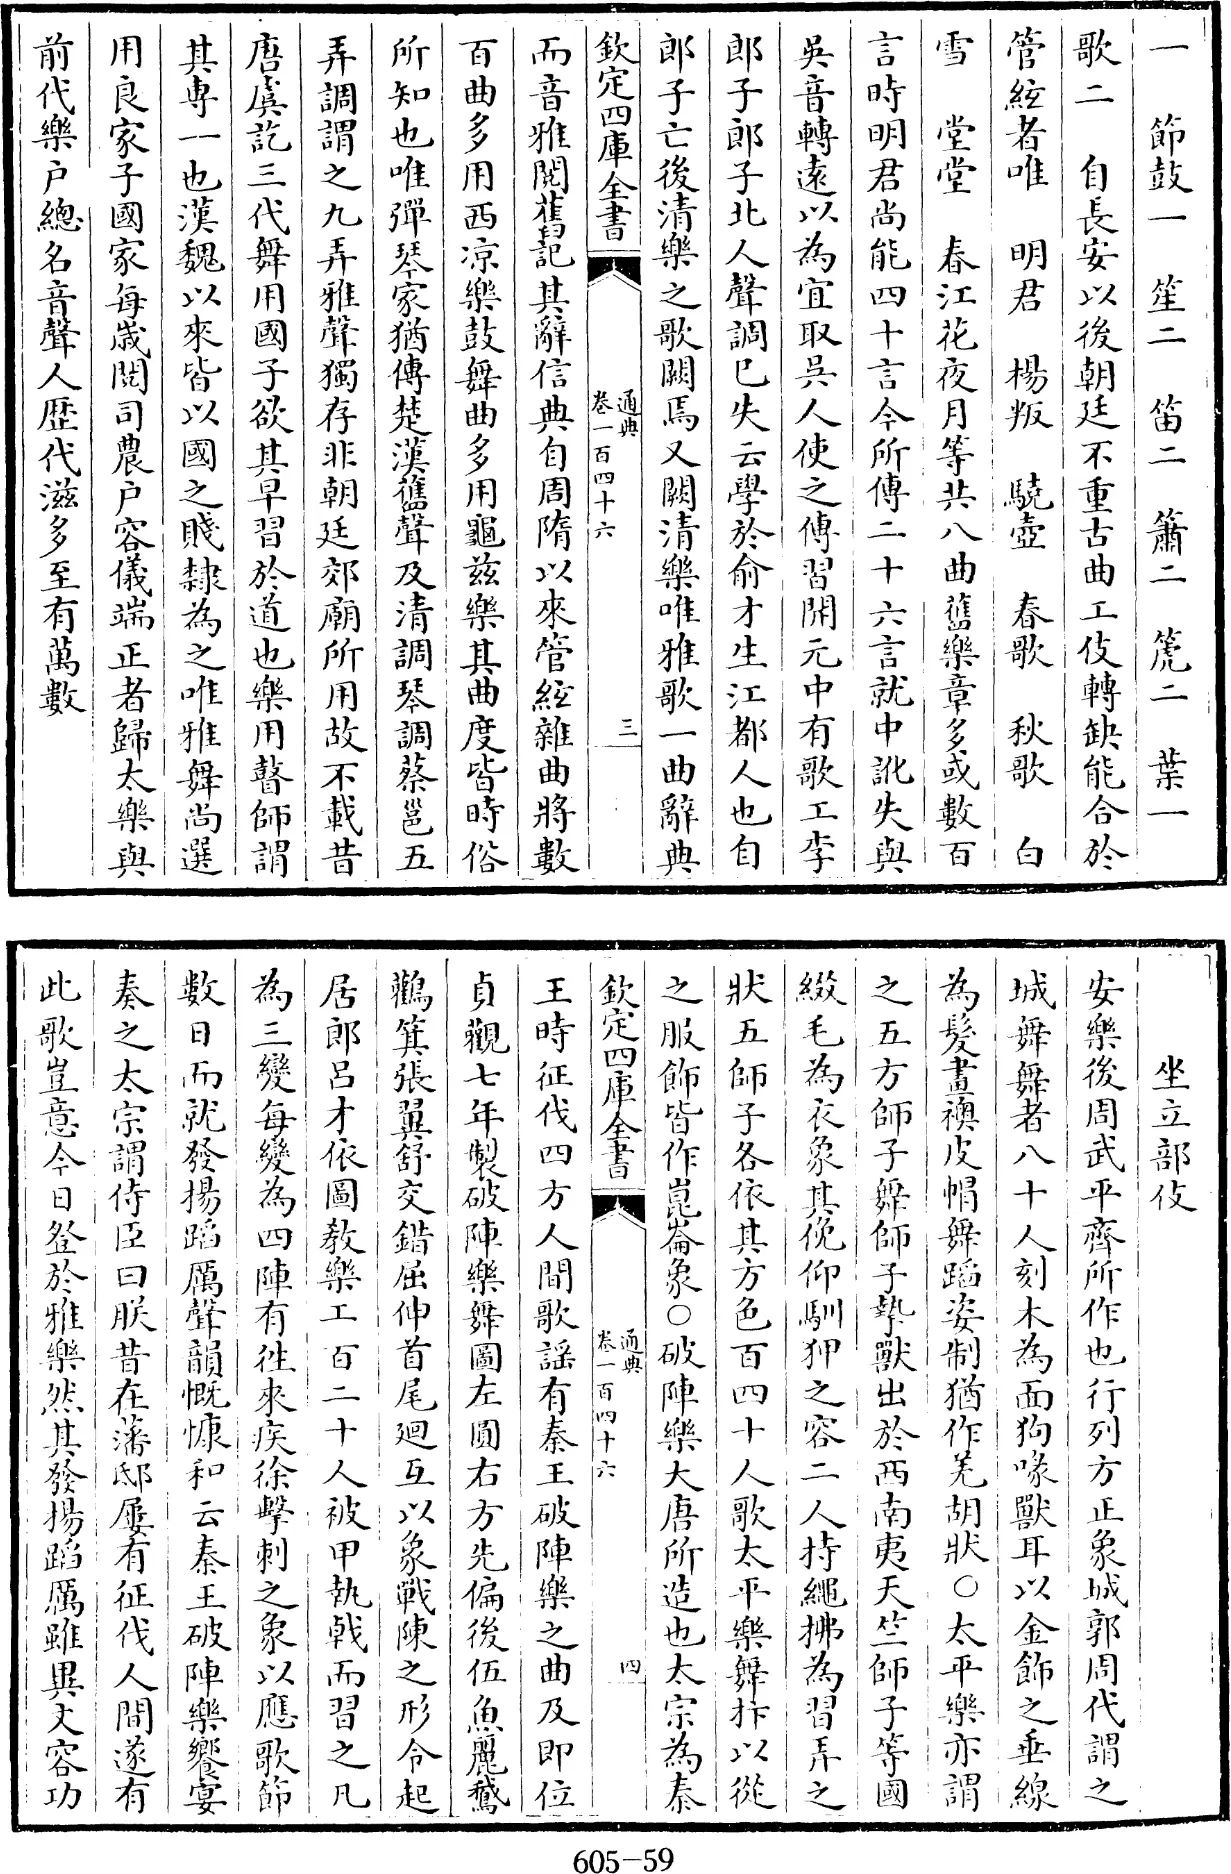 一　節鼓一　笙二　笛二　簫二　箎二　葉一
歌二　自長安以後朝廷不重古曲工伎轉缺能合於
管絃者唯　明君　楊叛　驍壺　春歌　秋歌　白
雪　堂堂　春江花夜月等共八曲舊樂章多或數百
言時明君尚能四十言今所傳二十六言就中訛失與
吳音轉遠以為宜取吳人使之傳習開元中有歌工李
郎子郎子北人聲調已失云學於俞才生江都人也自
郎子亡後清樂之歌闕焉又闕清樂唯雅歌一曲辭典
欽定四庫全書
通典
卷一百四十六
三
而音雅閱舊記其辭信典自周隋以來管絃雜曲將數
百曲多用西凉樂鼓舞曲多用龜兹樂其曲度皆時俗
所知也唯彈琴家猶傳楚漢舊聲及清調琴調蔡邕五
弄調謂之九弄雅聲獨存非朝廷郊廟所用故不載昔
唐虞訖三代舞用國子欲其早習於道也樂用瞽師謂
其專一也漢魏以來皆以國之賤隸為之唯雅舞尚選
用良家子國家每歲閱司農户容儀端正者歸太樂與
前代樂户總名音聲人歷代滋多至有萬數
坐立部伎
安樂後周武平齊所作也行列方正象城郭周代謂之
城舞舞者八十人刻木為面狗喙獸耳以金飾之垂線
為髮畫襖皮帽舞蹈姿制猶作羌胡狀○太平樂亦謂
之五方師子舞師子摯獸出於西南夷天竺師子等國
綴毛為衣象其俛仰馴狎之容二人持繩拂為習弄之
狀五師子各依其方色百四十人歌太平樂舞抃以從
之服飾皆作崑崙象○破陣樂大唐所造也太宗為秦
欽定四庫全書
通典
卷一百四十六
四
王時征伐四方人間歌謡有秦王破陣樂之曲及即位
貞觀七年製破陣樂舞圖左圓右方先偏後伍魚麗鵞
鸛箕張翼舒交錯屈伸首尾廻互以象戰陳之形令起
居郎呂才依圖教樂工百二十人被甲執戟而習之凡
為三變每變為四陣有往來疾徐擊刺之象以應歌節
數日而就發揚蹈厲聲韻慨慷和云秦王破陣樂饗宴
奏之太宗謂侍臣曰朕昔在藩邸屢有征伐人間遂有
此歌豈意今日登於雅樂然其發揚蹈厲雖異文容功
605-59